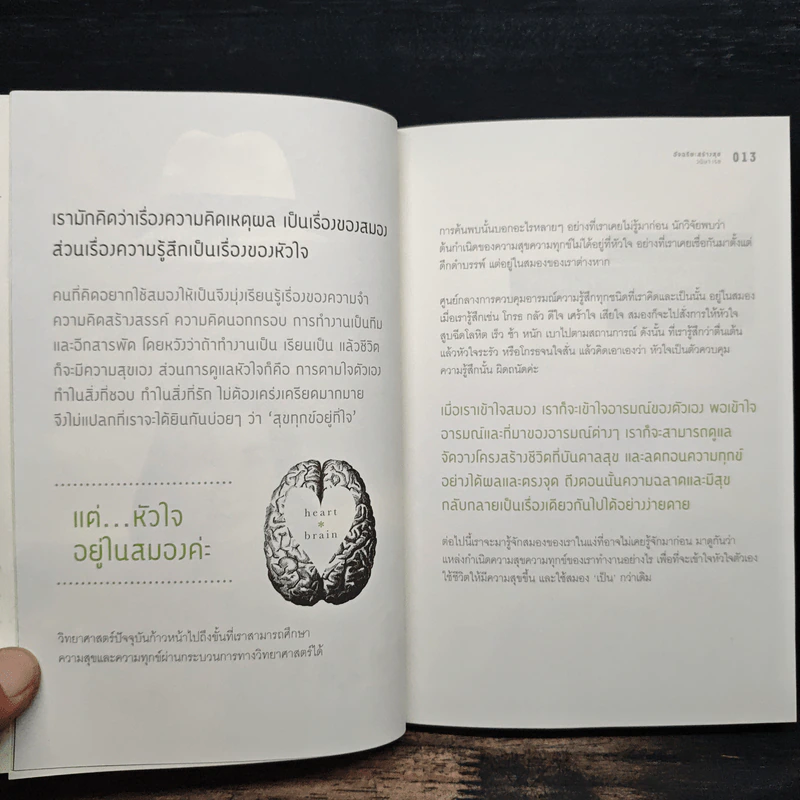 เรามักคิดว่าเรื่องความคิดเหตุผล เป็นเรื่องของสมอง
ส่วนเรื่องความรู้สึกเป็นเรื่องของหัวใจ
คนที่คิดอยากใช้สมองให้เป็นจึงมุ่งเรียนรู้เรื่องของความจำ
ความคิดสร้างสรรค์ ความคิดนอกกรอบ การทำงานเป็นทีม
และอีกสารพัด โดยหวังว่าถ้าทำงานเป็น เรียนเป็น แล้วชีวิต
ก็จะมีความสุขเอง ส่วนการดูแลหัวใจก็คือ การตามใจตัวเอง
ทำในสิ่งที่ชอบ ทำในสิ่งที่รัก ไม่ต้องเคร่งเครียดมากมาย
จึงไม่แปลกที่เราจะได้ยินกันบ่อยๆ ว่า 'สุขทุกข์อยู่ที่ใจ'
แต่...หัวใจ
อยู่ในสมองค่ะ
heart
*
brain
วิทยาศาสตร์ปัจจุบันก้าวหน้าไปถึงขั้นที่เราสามารถศึกษา
ความสุขและความทุกข์ผ่านกระบวนการทางวิทยาศาสตร์ได้
013
การค้นพบนั้นบอกอะไรหลายๆ อย่างที่เราเคยไม่รู้มาก่อน นักวิจัยพบว่า
ต้นกำเนิดของความสุขความทุกข์ไม่ได้อยู่ที่หัวใจ อย่างที่เราเคยเชื่อกันมาตั้งแต่
ดึกดำบรรพ์ แต่อยู่ในสมองของเราต่างหาก
ศูนย์กลางการควบคุมอารมณ์ความรู้สึกทุกชนิดที่เราคิดและเป็นนั้น อยู่ในสมอง
เมื่อเรารู้สึกเช่น โกรธ กลัว ดีใจ เศร้าใจ เสียใจ สมองก็จะไปสั่งการให้หัวใจ
สูบฉีดโลหิต เร็ว ช้า หนัก เบาไปตามสถานการณ์ ดังนั้น ที่เรารู้สึกว่าตื่นเต้น
แล้วหัวใจระรัว หรือโกรธจนใจสั่น แล้วคิดเอาเองว่า หัวใจเป็นตัวควบคุม
ความรู้สึกนั้น ผิดถนัดค่ะ
เมื่อเราเข้าใจสมอง เราก็จะเข้าใจอารมณ์ของตัวเอง พอเข้าใจ
อารมณ์และที่มาของอารมณ์ต่างๆ เราก็จะสามารถดูแล
จัดวางโครงสร้างชีวิตที่บันดาลสุข และลดทอนความทุกข์
อย่างได้ผลและตรงจุด ถึงตอนนั้นความฉลาดและมีสุข
กลับกลายเป็นเรื่องเดียวกันไปได้อย่างง่ายดาย
ต่อไปนี้เราจะมารู้จักสมองของเราในแง่ที่อาจไม่เคยรู้จักมาก่อน มาดูกันว่า
แหล่งกำเนิดความสุขความทุกข์ของเราทำงานอย่างไร เพื่อที่จะเข้าใจหัวใจตัวเอง
ใช้ชีวิตให้มีความสุขขึ้น และใช้สมอง 'เป็น' กว่าเดิม